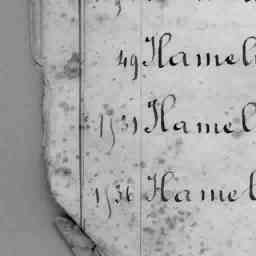 49 Hamel
1731 Hamel
1736 Hamel